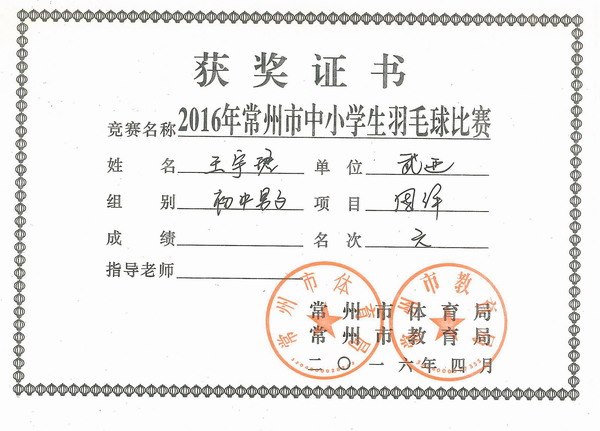 获奖证书
竞赛名称 2016年常州市中小学生羽毛球比赛
姓名 王宇 单位 武进
组别 初中男 项目 团体
成绩 名次
指导老师
常州市体育局
常州市教育局
二〇一六年四月
常州市体育局
常州市教育局